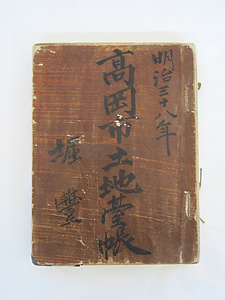 明治三十八年
高岡市土地臺帳
堀